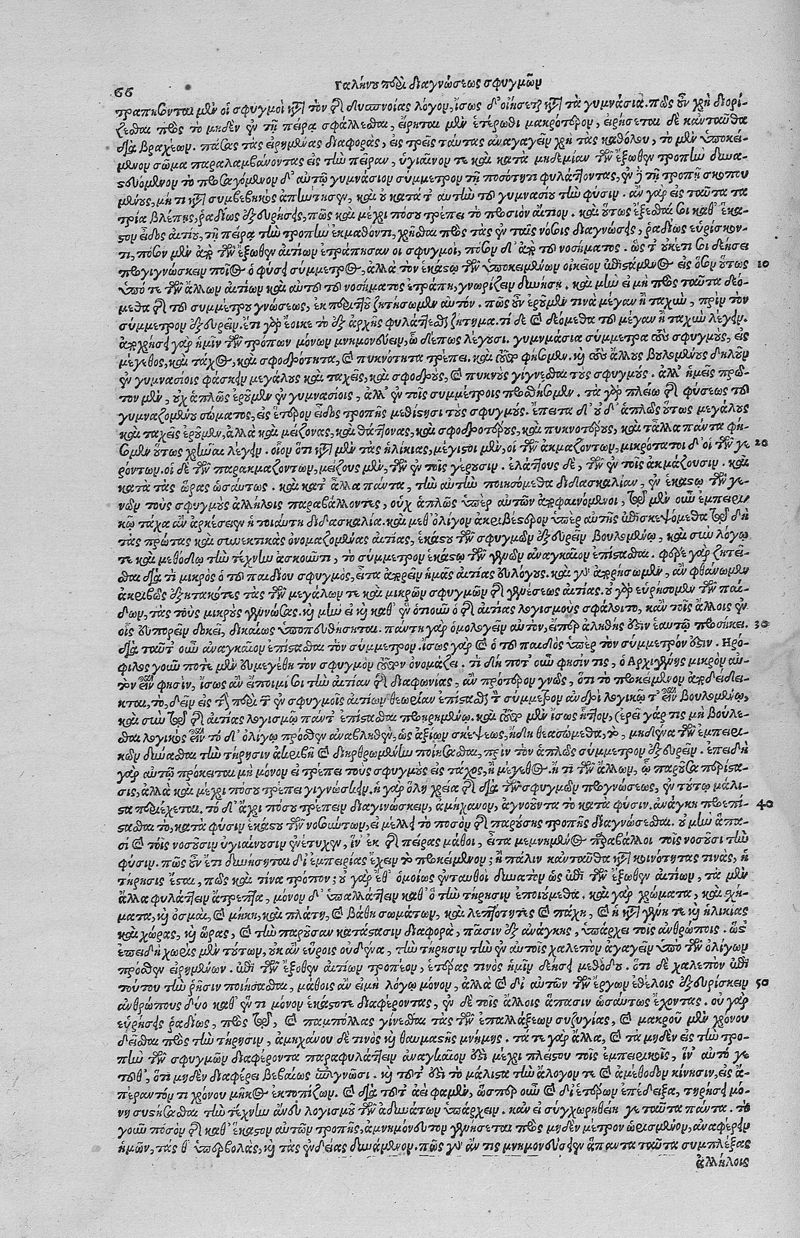 66 Γαληνοῦ περὶ διαγνώσεως σφυγμῶν
τραπήσονται μὲν οἱ σφυγμοὶ κατὰ τὸν τῆς δυσπνοίας λόγον, ἴσως δ' οἰήσεται κατὰ τὰ γυμνάσια. πῶς οὖν χρὴ διορί-
ζεσθαι πρὸς τὸ μηδὲν ἐν τῇ πείρᾳ σφάλλεσθαι, εἴρηται μὲν ἑτέρωθι μακρότερον, εἰρήσεται δὲ κἀνταῦθα
διὰ βραχέων. πάσας τὰς εἰρημένας διαφορὰς, εἰς τρεῖς ταύτας ἀναγαγεῖν χρὴ τὰς καθόλου, τὸ μὲν ὑποκεί-
μενον σῶμα παραλαμβάνοντας εἰς τὴν πεῖραν, ὑγιαῖνόν τε καὶ κατὰ μηδεμίαν τῶν ἔξωθεν τροπὴν δυνα-
στευόμενον τὸ προσαγόμενον δ' αὐτῷ γυμνάσιον σύμμετρον τῇ ποσότητι φυλάττοντας, ἐν δὲ τῇ τροπῇ σκοπου
μένους, μή τι κατὰ συμβεβηκὸς ἀπήντησεν, καὶ οὐ κατὰ τὴν αὐτὴν τοῦ γυμνασίου τὴν φύσιν. ἂν γὰρ εἰς ταῦτα τὰ
τρία βλέπῃς, ῥᾳδίως ἐξευρήσεις, πῶς καὶ μέχρι πόσου τρέπει τὸ προσιὸν αἴτιον. καὶ οὕτως ἐξέσται σοι καθ' ἕκα-
στον εἶδος αἰτίου, τῇ πείρᾳ τὴν τροπὴν ἐκμαθόντι, χρῆσθαι πρὸς τὰς ἐν ταῖς νόσοις διαγνώσεις, ῥᾳδίως εὑρίσκον-
τι, πόσον μὲν ἀπὸ τῶν ἔξωθεν αἰτίων ἐτράπησαν οἱ σφυγμοὶ, πόσον δ' ἀπὸ τοῦ νοσήματος. ὥστ' οὐκέτι σοι δεήσει
προγιγνώσκειν ποῖος ὁ φύσει σύμμετρος, ἀλλὰ τὸν ἑκάστῳ τῶν ὑποκειμένων οἰκεῖον ἐπιστάμενος εἰς ὅσον οὗτος 10
ὑπό τε τῶν ἄλλων αἰτίων καὶ αὐτοῦ τοῦ νοσήματος ἐτράπη, γνωρίζειν δυνήσῃ. καὶ μὴν εἰ μὴ πρὸς ταῦτα δεό-
μεθα τῆς τοῦ συμμέτρου γνώσεως, ἐκ περιττοῦ ζητήσωμεν αὐτόν. πῶς οὖν ἐροῦμέν τινα μέγαν ἢ ταχὺν, πρὶν τὸν
σύμμετρον ἐξευρεῖν. ἔτι γὰρ ἔοικε τὸ ἐξ ἀρχῆς φυλάττεσθαι ζήτημα. τί δὲ καὶ δεόμεθα τοῦ μέγαν ἢ ταχὺν λέγειν.
ἀρκέσει γὰρ ἡμῖν τῶν τρόπων μόνων μνημονεύειν, ὧδέ πως λέγουσι. γυμνάσια σύμμετρα τοὺς σφυγμοὺς, εἰς
μέγεθος, καὶ τάχος, καὶ σφοδρότητα, καὶ πυκνότητα τρέπει. καὶ τοῦτο φήσομεν. καὶ τοὺς ἄλλους βουλομένους δηλοῦν
ἐν γυμνασίοις φάσκειν μεγάλους καὶ ταχεῖς, καὶ σφοδροὺς, καὶ πυκνοὺς γίγνεσθαι τοὺς σφυγμούς. ἀλλ' ἡμεῖς πρῶ-
τον μὲν, οὐχ ἁπλῶς ἐροῦμεν ἐν γυμνασίοις, ἀλλ' ἐν τοῖς συμμέτροις προσθήσομεν. τὰ γὰρ πλείω τῆς φύσεως τοῦ
γυμναζομένου σώματος, εἰς ἕτερον εἶδος τροπῆς μεθίστησι τοὺς σφυγμούς. ἔπειτα δ' οὐδ' ἁπλῶς οὕτως μεγάλους
καὶ ταχεῖς ἐροῦμεν, ἀλλὰ καὶ μείζονας, καὶ θάττονας, καὶ σφοδροτέρους, καὶ πυκνοτέρους, καὶ τἄλλα πάντα φή-
σομεν οὕτως χρῆναι λέγειν. οἷον ὅτι κατὰ μὲν τὰς ἡλικίας, μέγιστοι μὲν, οἱ τῶν ἀκμαζόντων, μικρότατοι δ' οἱ τῶν γε 20
ρόντων. οἱ δὲ τῶν παρακμαζόντων, μείζους μὲν, τῶν ἐν τοῖς γέρουσιν. ἐλάττους δὲ, τῶν ἐν τοῖς ἀκμάζουσιν. καὶ
κατὰ τὰς ὥρας ὡσαύτως. καὶ κατ' ἄλλα πάντα, τὴν αὐτὴν ποιησόμεθα διδασκαλίαν, ἐν ἑκάστῳ τῶν γε-
νῶν τοὺς σφυγμοὺς ἀλλήλοις παραβάλλοντες, οὐχ ἁπλῶς ὑπὲρ αὐτῶν ἀποφαινόμενοι, τῷ μὲν οὖν ἐμπειρι-
κῷ τάχα ἂν ἀρκέσειεν ἡ τοιαύτη διδασκαλία. καὶ μεθ' ὀλίγον ἀκριβέστερον ὑπὲρ αὐτῆς ἐπισκεψόμεθα τῷ δὴ
τὰς πρώτας καὶ συνεκτικὰς ὀνομαζομένας αἰτίας, ἑκάστου τῶν σφυγμῶν ἐξευρεῖν βουλομένῳ, καὶ σὺν λόγῳ
τε καὶ μεθόδῳ τὴν τέχνην ἀσκοῦντι, τὸ σύμμετρον ἑκάστῳ τῶν γενῶν ἀναγκαῖον ἐπίστασθαι. φέρε γὰρ ζητεῖ-
σθαι διὰ τί μικρὸς ὁ τοῦ παιδίου σφυγμὸς, εἶτα ἀπορεῖν ἡμᾶς αἰτίας εὐλόγους. καὶ γ' οὐκ ἀπορήσωμεν, ἂν φθάνωμεν
ἀκριβῶς ἐξητακότες τὰς τῶν μεγάλων τε καὶ μικρῶν σφυγμῶν τῆς γενέσεως αἰτίας. οὐ γὰρ εὑρήσομεν τῶν παί-
δων, τὰς τοὺς μικροὺς γεννώσας. καὶ μὴν εἰ καὶ καθ' ἓν ὁτιοῦν ὁ τῆς αἰτίας λογισμὸς σφάλοιτο, κἂν τοῖς ἄλλοις ἐν
οἷς εὐπορεῖν δοκεῖ, δικαίως ὑποπτευθήσεται. πάντῃ γὰρ ὁμολογεῖν αὐτὸν, εἴπερ ἀληθής ἐστιν ἑαυτῷ προσήκει. 30
διὰ ταῦτ' οὖν ἀναγκαῖον ἐπίστασθαι τὸν σύμμετρον. ἴσως γὰρ καὶ ὁ τοῦ παιδὸς ὑπὲρ τὸν σύμμετρόν ἐστιν. Ἡρό-
φιλος γοῦν ποτε μὲν εὐμεγέθη τὸν σφυγμὸν τοῦτον ὀνομάζει. τί δή ποτ' οὖν φησίν τις, ὁ Ἀρχιγένης μικρὸν αὐ-
τὸν εἶναί φησιν, ἴσως ἂν εἴποιμί σοι τὴν αἰτίαν τῆς διαφωνίας, ἂν πρότερον γνῷς, ὅτι τὸ προκείμενον ἀποδέδει-
κται, τὸ, δεῖν εἰς τὴν περὶ τῶν ἐν σφυγμοῖς αἰτίων θεωρίαν ἐπίστασθαι τὸ σύμμετρον ἀνδρὶ λογικῷ τ' εἶναι βουλομένῳ,
καὶ σὺν τῷ τῆς αἰτίας λογισμῷ πάντ' ἐπίστασθαι προῃρημένῳ. καὶ τοῦτο μὲν ἴσως ἧττον, ἐρεῖ γάρ τις μὴ βούλε-
σθαι λογικὸς εἶναι τὸ δ' ὀλίγῳ πρόσθεν ἀναβληθὲν, ὡς ἀξίων σκέψεως, ἤδη θεασώμεθα, τὸ, μηδένα τῶν ἐμπειρι-
κῶν δύνασθαι τὴν τήρησιν ἀκριβῆ καὶ διηρθρωμένην ποιήσασθαι, πρὶν τὸν ἁπλῶς σύμμετρον ἐξευρεῖν. ἐπειδὴ
γὰρ αὐτῷ πρόκειται μὴ μόνον εἰ τρέπει τοὺς σφυγμοὺς εἰς τάχος, ἢ μέγεθος ἤ τι τῶν ἄλλων, ᾧ παροῦσα περίστα-
σις, ἀλλὰ καὶ μέχρι πόσου τρέπει γιγνώσκειν, ἡ γὰρ ὅλη χρεία τῆς διὰ τῶν σφυγμῶν προγνώσεως, ἐν τούτῳ μάλι-
στα περιέχεται. τὸ δ' ἄχρι πόσου τρέπειν διαγινώσκειν, ἀμήχανον, ἀγνοοῦντα τὸ κατὰ φύσιν. ἀνάγκη προεπί- 40
στασθαι τὸ, κατὰ φύσιν ἑκάστου τῶν νοσούντων, εἰ μέλλει τὸ ποσὸν τῆς παρούσης τροπῆς διαγνώσεσθαι. οὐ μὴν ἅπα-
σί γε τοῖς νοσοῦσιν ὑγιαίνουσιν ἐνέτυχεν, ἵν' ἐκ τῆς πείρας μάθοι, εἶτα μεμνημένος παραβάλλοι τοῖς νοσοῦσι τὴν
φύσιν. πῶς οὖν ἔτι δυνήσονται δι' ἐμπειρίας ἔχειν τὸ προκείμενον; ἢ πάλιν κἀνταῦθα κατὰ κοινότητάς τινας, ἡ
τήρησις ἔσται, πῶς καὶ τίνα τρόπον; οὐ γὰρ ἔθ' ὁμοίως ἐνταυθοῖ δυνατὸν ὡς ἐπὶ τῶν ἔξωθεν αἰτίων, τὰ μὲν
ἄλλα φυλάττειν ἄτρεπτα, μόνον δ' ὑπαλλάττειν καθ' ὃ τὴν τήρησιν ἐποιούμεθα. καὶ γὰρ χρώματα, καὶ σχή-
ματα, καὶ ὀσμαὶ, καὶ μήκη, καὶ πλάτη, καὶ βάθη σωμάτων, καὶ λεπτότητες καὶ πάχη, καὶ ἡ κατὰ γένη τε καὶ ἡλικίας
καὶ χώρας, καὶ ὥρας, καὶ τὴν παροῦσαν κατάστασιν διαφορὰ, πᾶσιν ἐξ ἀνάγκης, ὑπάρχει τοῖς ἀνθρώποις. ὥστ'
ἐπειδὴ χωρὶς μὲν τούτων, οὐκ ἂν εὕροις οὐδένα, τὴν τήρησιν τὴν ἐν αὐτοῖς χαλεπὸν ἀγαγεῖν ὑπὸ τῶν ὀλίγων
πρόσθεν εἰρημένων. ἐπὶ τῶν ἔξωθεν αἰτίων τροπέον, ἑτέρας τινὸς ἡμῖν δεήσει μεθόδου. ὅτι δὲ χαλεπὸν ἐπὶ
τούτου τὴν ῥῆσιν ποιήσασθαι, μάθοις ἂν εἰ μὴ λόγῳ μόνον, ἀλλὰ καὶ δι' αὐτῶν τῶν ἔργων ἐθέλοις ἐξευρίσκειν 50
ἀνθρώπους δύο καθ' ἕν τι μόνον ἑκάστοτε διαφέροντας, ἐν δὲ τοῖς ἄλλοις ἅπασιν ὡσαύτως ἔχοντας. οὐ γὰρ
εὑρήσεις ῥᾳδίως, πρὸς τῷ, καὶ παμπόλλας γίνεσθαι τὰς τῶν ἐπαλλάξεων συζυγίας, καὶ μακροῦ μὲν χρόνου
δεῖσθαι πρὸς τὴν τήρησιν, ἀμηχάνου δέ τινος καὶ θαυμαστῆς μνήμης. τά τε γὰρ ἄλλα, καὶ τὰ μηδὲν εἰς τὴν τρο-
πὴν τῶν σφυγμῶν διαφέροντα παραφυλάττειν ἀναγκαῖόν ἐστι μέχρι πλείστου τοῖς ἐμπειρικοῖς, ἵν' αὐτό γε
τοῦθ', ὅτι μηδὲν διαφέρει βεβαίως ἐπιγνῶσι. καὶ τοῦτ' ἐστὶ τὸ μάλιστα τὴν ἄλογόν τε καὶ ἀμέθοδον κίνησιν, εἰς ἀ-
πέραντόν τι χρόνου μῆκος ἐκτοπίζων. καὶ διὰ τοῦτ' ἀεὶ φαμὲν, ὥσπερ οὖν καὶ δι' ἑτέρων ἐπέδειξα, τηρήσει μό-
νῃ συστήσασθαι τὴν τέχνην ἄνευ λογισμοῦ τῶν ἀδυνάτων ὑπάρχειν. κἂν εἰ συγχωρηθείη γε ταῦτα πάντα. τὸ
γοῦν ποσὸν τῆς καθ' ἕκαστον αὐτῶν τροπῆς, ἀμνημόνευτον γενήσεται πρὸς μηδὲν μέτρον ὡρισμένον, ἀναφέρειν
ἡμῶν, τάς θ' ὑπερβολὰς, καὶ τὰς ἐνδείας δυνάμενον. πῶς γ' οὖν ἄν τις μνημονεύσειεν ἅπαντα ταῦτα συμπλέξας
ἀλλήλοις